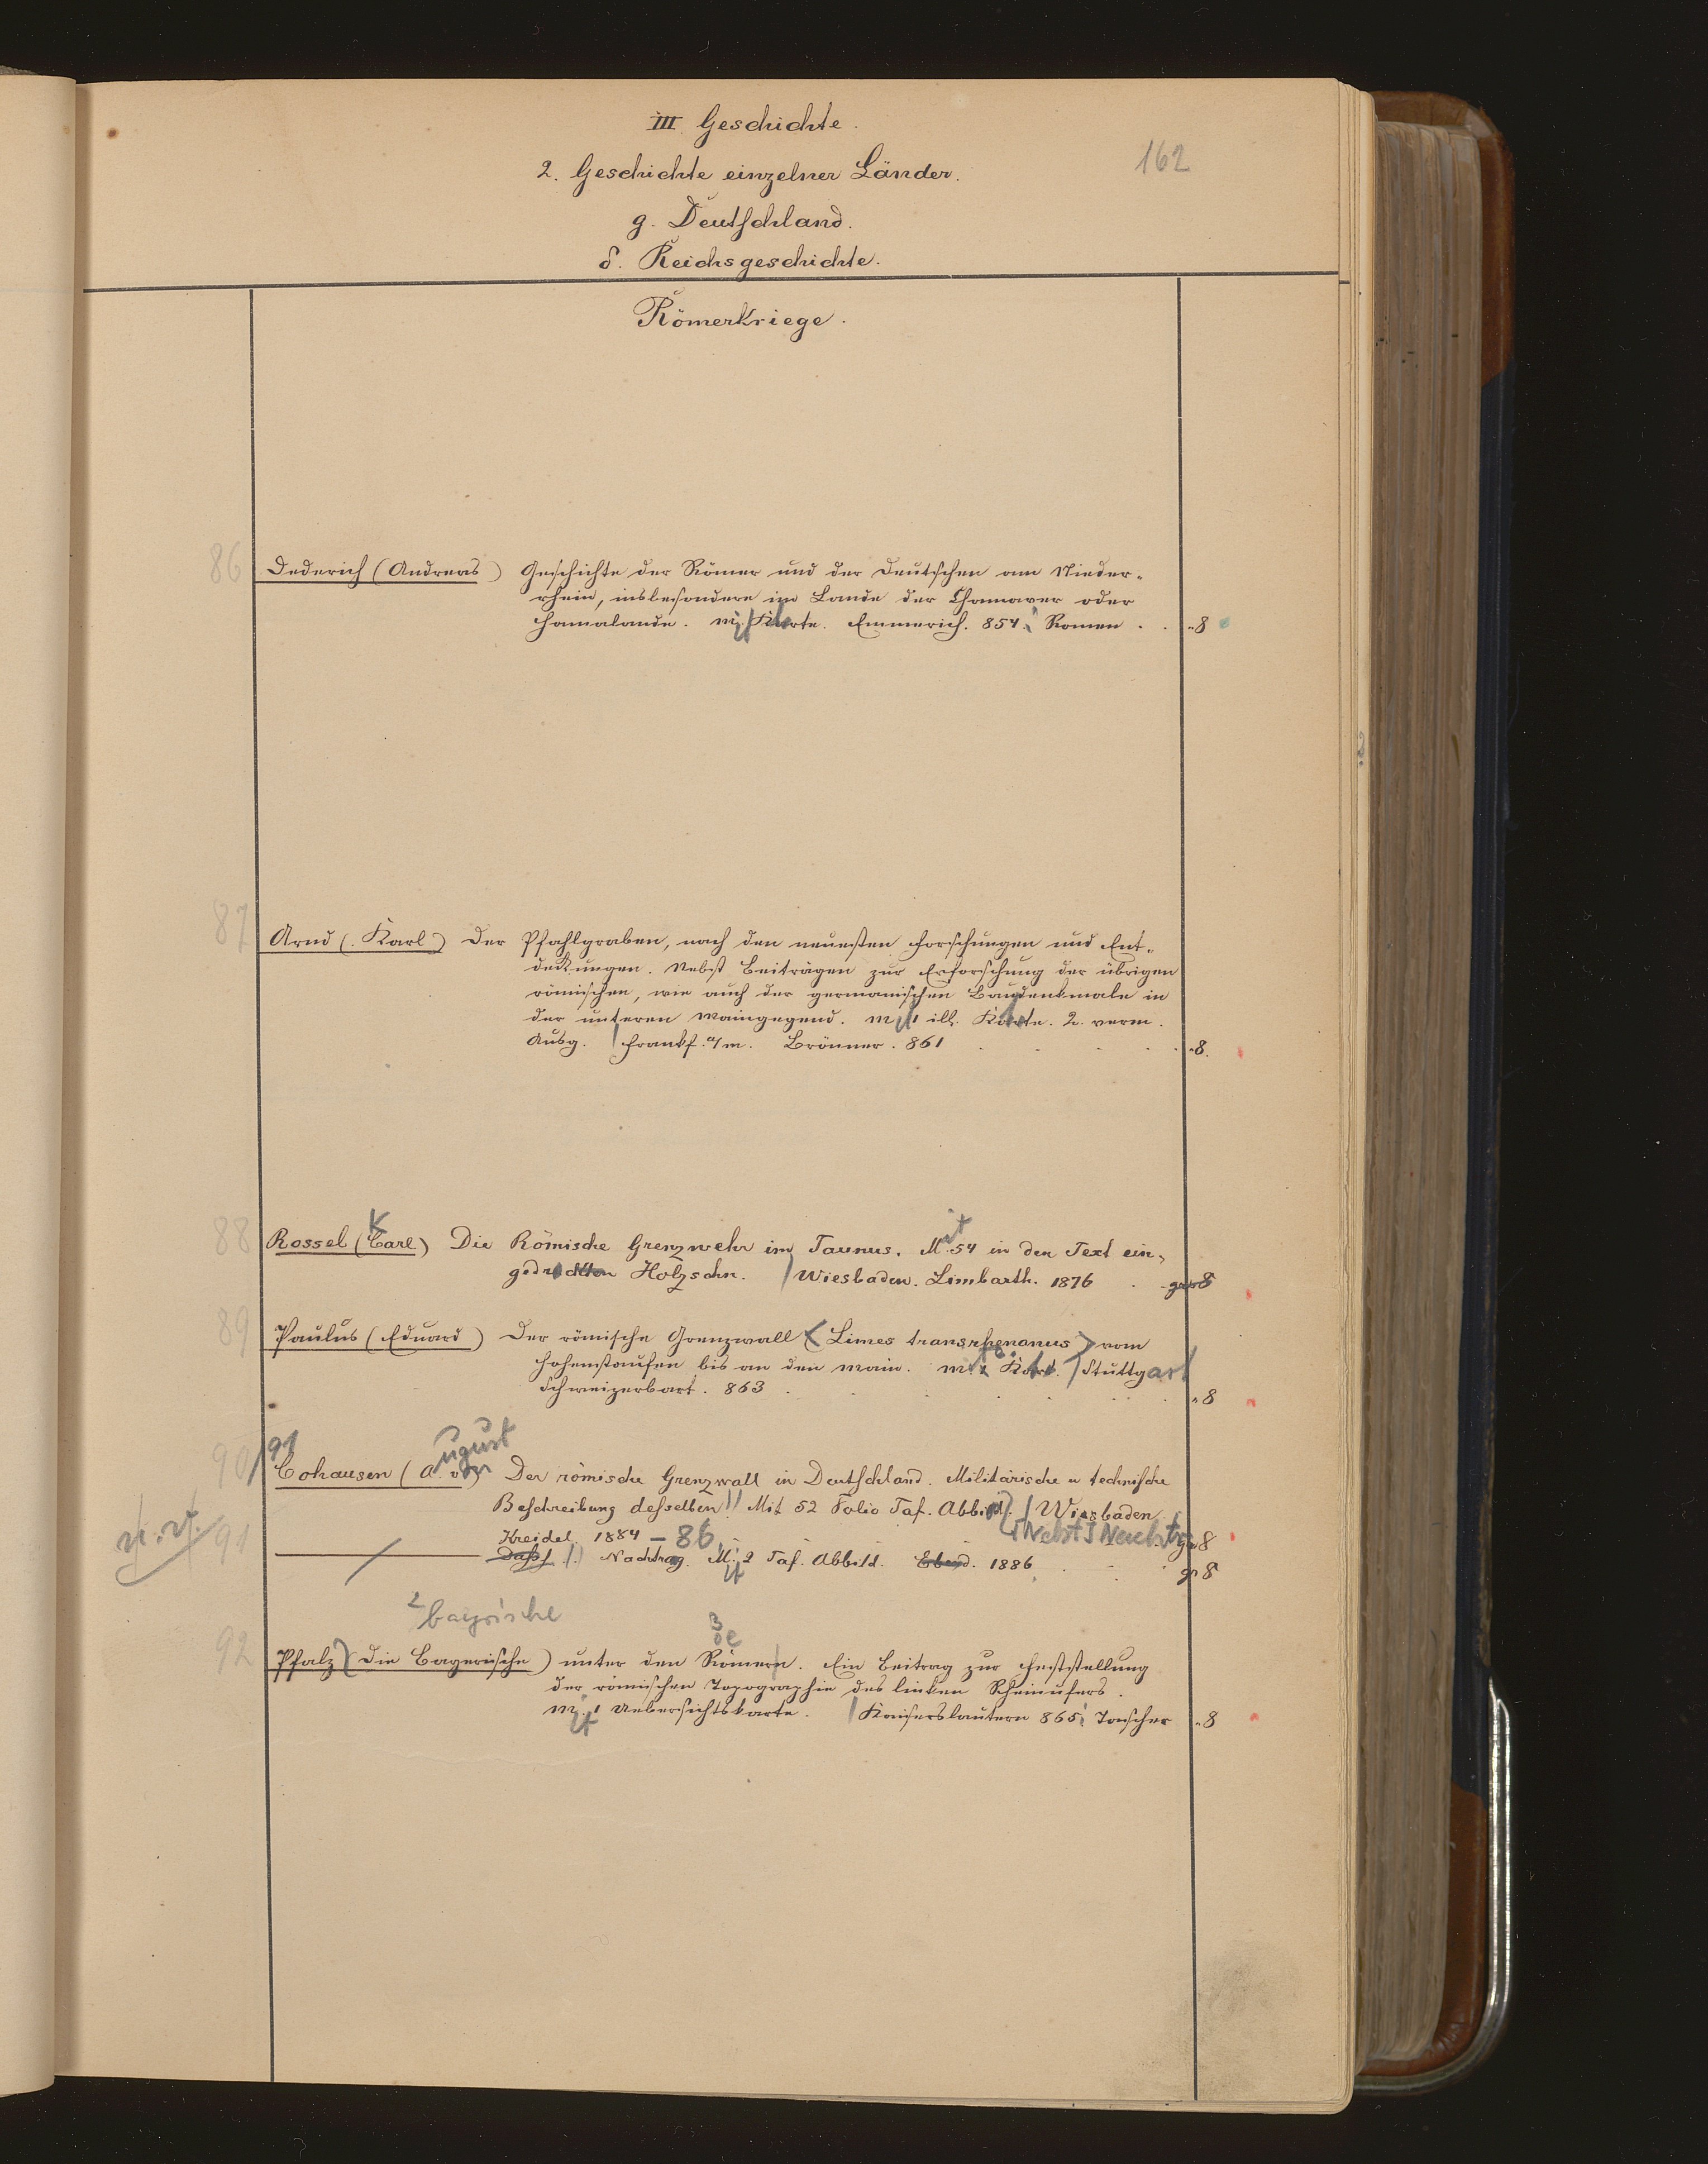 III Geschichte.
162
2. Geschichte einzelner Länder.
g. Deutschland.
δ. Reichsgeschichte.
Römerkriege.
86 Dederich (Andreas) Geschichte der Römer und der Deutschen am Nieder-
rhein, insbesondere im Lande der Chamaver oder
Hamalande. Mit Karte. Emmerich. 854. Romen . . -8
87 Arnd (Karl) Der Pfahlgraben, nach den neuesten Forschungen und Ent-
deckungen. Nebst Beiträgen zur Erforschung der übrigen
römischen, wie auch der germanischen Baudenkmale in
der unteren Maingegend. M 1 ill. Karte. 2. verm.
Ausg. Frankf. a/M. Brönner. 861 . . . . . -8.
K it
88 Rossel (Carl) Die Römische Grenzwehr im Taunus. M. 54 in den Text ein-
gedruckten Holzschn. Wiesbaden. Limbarth. 1876 . gr 8
89 Paulus (Eduard) Der römische Grenzwall (Limes transrhenanus) vom
Hohenstaufen bis an den Main. Mit Karte. Stuttgart
Schweizerbart. 863 . . . . . . -8
ugust
90/91 Cohausen (A. von) Der römische Grenzwall in Deutschland. Militärische u technische
Beschreibung desselben. Mit 52 Folio Taf. Abbild. Wiesbaden
Kreidel. 1884 – 86. [Nebst] Nachtrg gr 8
91 Dass. Nachtrag. Mit 2 Taf. Abbild. Ebend. 1886. . . gr 8
2 bayrische
3
oe
92 Pfalz (Die Bayerische) unter den Römern. Ein Beitrag zur Feststellung
der römischen Topographie des linken Rheinufers.
Mit 1 Uebersichtskarte. Kaiserslautern 865. Tascher -8